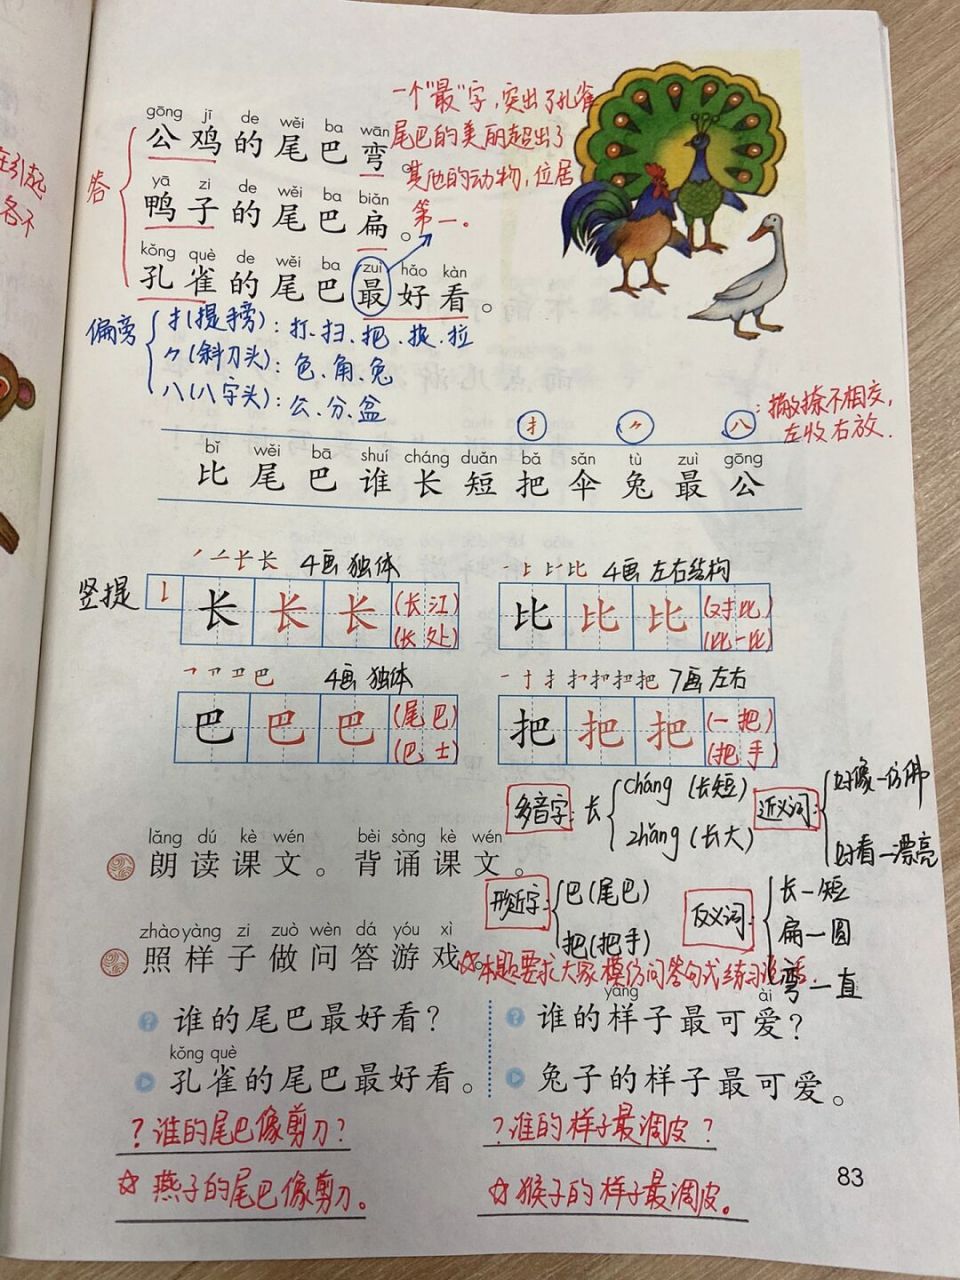 一个"最"字，突出了孔雀
尾巴的美丽超出了
其他的动物，位居
第一。
gōng jī de wěi ba wān
公鸡的尾巴弯。
yā zi de wěi ba biǎn
鸭子的尾巴扁。
kǒng què de wěi ba zuì hǎo kàn
孔雀的尾巴最好看。
答
在引起
各不
偏旁
扌(提手旁)：打、扫、把、拔、拉
⺈(斜刀头)：色、角、兔
八(八字头)：公、分、盆
扌 ⺈ 八：撇捺不相交，
左收右放.
bǐ wěi bā shuí cháng duǎn bǎ sǎn tù zuì gōng
比 尾 巴 谁 长 短 把 伞 兔 最 公
4画 独体
竖提
长 长 长 (长江)
(长处)
4画 左右结构
比 比 比 (对比)
(比一比)
4画 独体
巴 巴 巴 (尾巴)
(巴士)
7画 左右
把 把 把 (一把)
(把手)
多音字：长
cháng (长短)
zhǎng (长大)
近义词：
好像—仿佛
好看—漂亮
lǎng dú kè wén bèi sòng kè wén
朗读课文。背诵课文。
形近字：
巴(尾巴)
把(把手)
反义词：
长—短
扁—圆
弯—直
zhào yàng zi zuò wèn dá yóu xì
照样子做问答游戏。
☆本题要求大家模仿问答句式练习说话.
谁的尾巴最好看？
kǒng què
孔雀的尾巴最好看。
yàng ài
谁的样子最可爱？
兔子的样子最可爱。
？谁的尾巴像剪刀？
☆ 燕子的尾巴像剪刀。
？谁的样子最调皮？
☆ 猴子的样子最调皮。
83